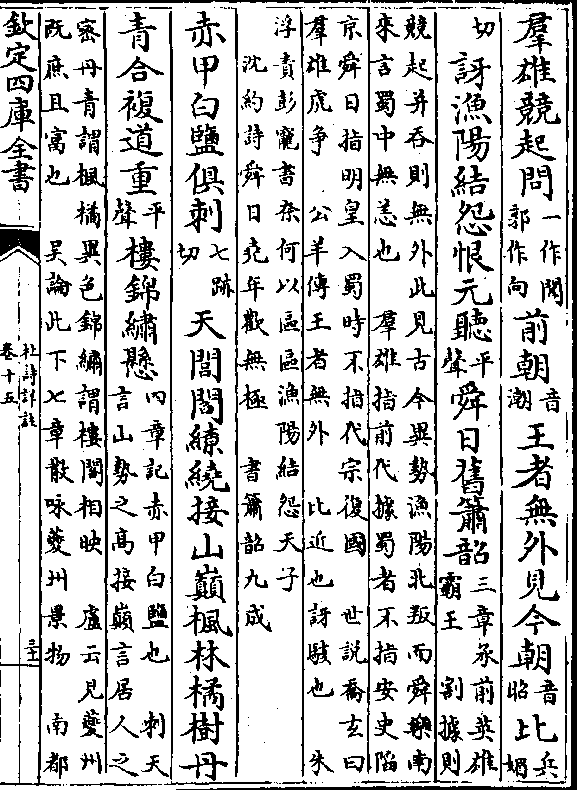 羣雄競起問一作聞郭作向前朝音潮王者無外見今朝音昭比兵媚
切訝漁陽結怨恨元聽平聲舜日舊簫韶三章承前英雄霸王 割據則
競起并吞則無外此見古今異勢漁陽北叛而舜樂南
來言蜀中無恙也 羣雄指前代據蜀者不指安史陷
京舜日指明皇入蜀時不指代宗復國 世說喬玄曰
羣雄虎争 公羊傳王者無外 比近也訝駭也 朱
浮責彭寵書奈何以區區漁陽結怨天子
沈約詩舜日堯年歡無極 書簫韶九成
赤甲白鹽俱刺七跡切天閭閻繚繞接山巔楓林橘樹丹
青合複道重平聲樓錦繡懸四章記赤甲白鹽也 刺天言山勢之高接巔言居人之
密丹青謂楓橘異色錦繡謂樓閣相映 盧云見夔州
既庶且富也 吳論此下七章散咏夔州景物 南都
欽定四庫全書
杜詩詳註
卷十五